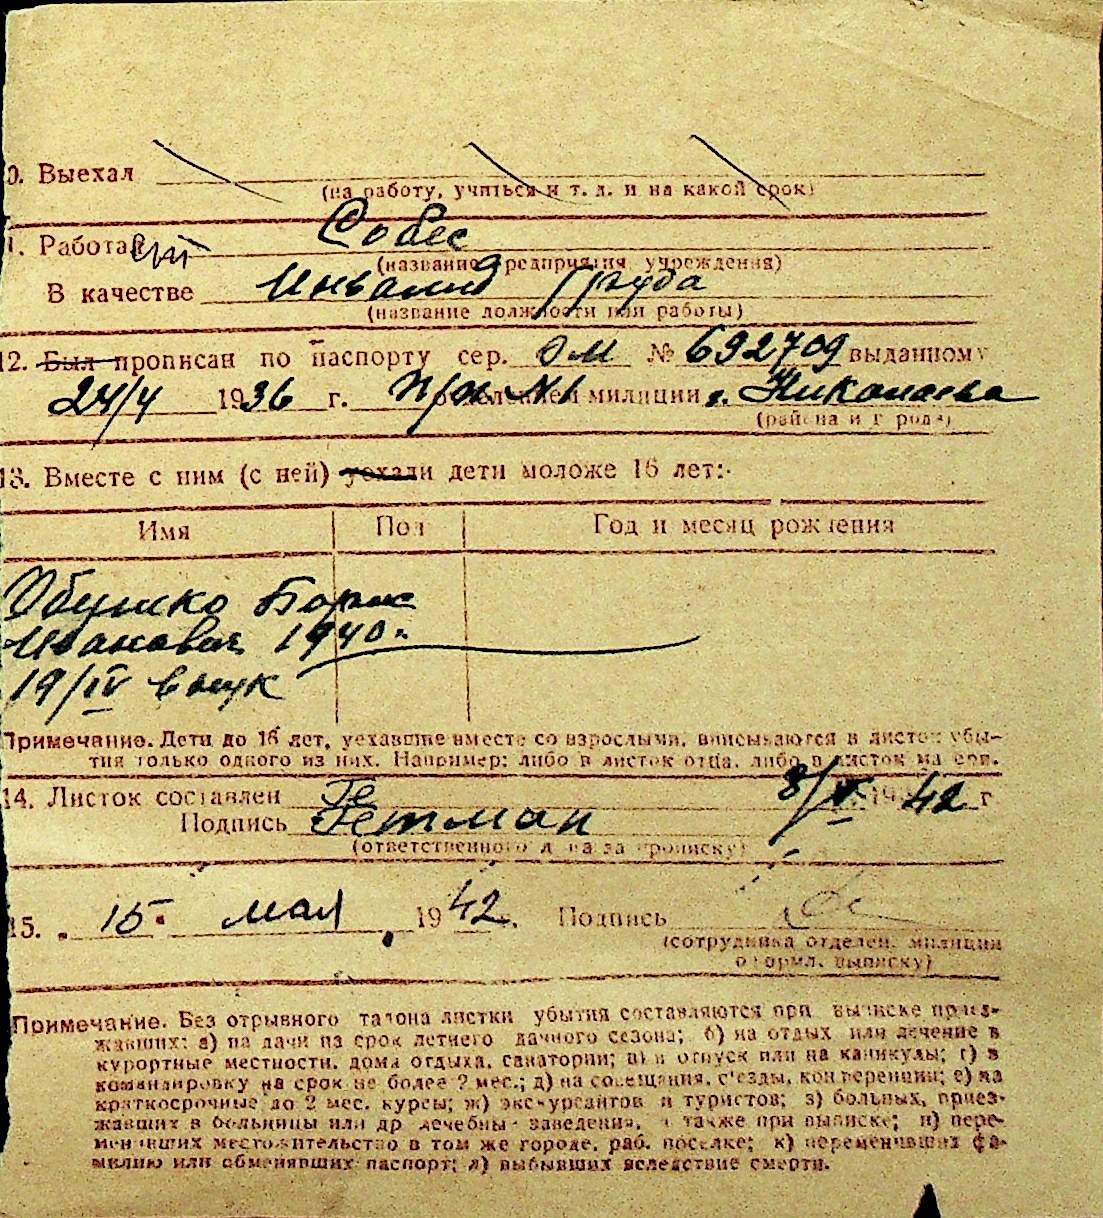 0. Выехал
(на работу, учиться и т. д. и на какой срок)
1. Работает Собес
(название предприятия учреждения)
В качестве Инвалид Труда
(название должности или работы)
12. Был прописан по паспорту сер. ОМ № 692709 выданному
24/4 1936 г. отделением милиции г. Николаева
(района и города)
13. Вместе с ним (с ней) уехали дети моложе 16 лет:
Имя Пол Год и месяц рождения
Обушко Борис
Иванович 1940.
19/IV внук
Примечание. Дети до 16 лет, уехавшие вместе со взрослыми, вписываются в листок убы-
тия только одного из них. Например: либо в листок отца, либо в листок матери.
14. Листок составлен 8/V 1942 г
Подпись Гетман
(ответственного лица за прописку)
15. 15. мая 1942. Подпись
(сотрудника отделен. милиции
оформл. выписку)
Примечание. Без отрывного талона листки убытия составляются при выписке приез-
жавших: а) на дачи на срок летнего дачного сезона; б) на отдых или лечение в
курортные местности, дома отдыха, санатории; в) в отпуск или на каникулы; г) в
командировку на срок не более 2 мес.; д) на совещания, с'езды, конференции; е) на
краткосрочные до 2 мес. курсы; ж) экскурсантов и туристов; з) больных, приез-
жавших в больницы или др лечебны заведения, а также при выписке; и) пере-
менивших местожительство в том же городе, раб. поселке; к) переменивших фа-
милию или обменявших паспорт; л) выбывших вследствие смерти.